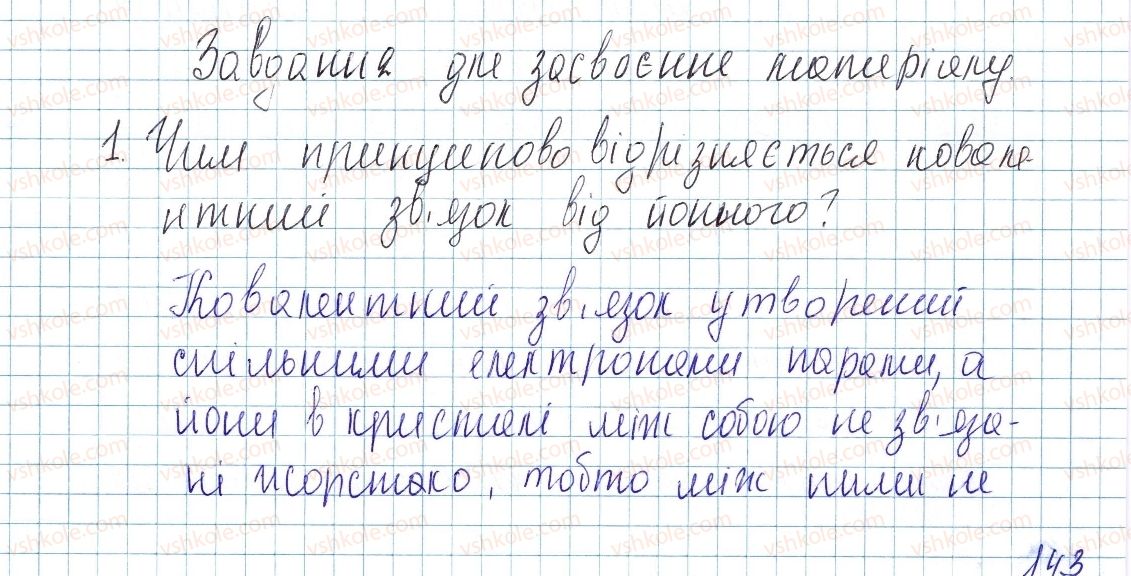 Завдання для засвоєння матеріалу.
1. Чим принципово відрізняється ковале-
нтний зв'язок від йонного?
Ковалентний зв'язок утворений
спільними електронами парами, а
йони в кристалі між собою не зв'яза-
ні жорстоко, тобто між ними не
143